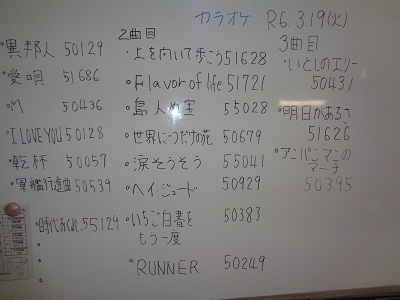 カラオケ R6.3.19(火)
・異邦人 50129
・愛唄 51686
・M 50436
・I LOVE YOU 50128
・乾杯 50057
・軍艦行進曲 50539
・時代おくれ 55129
2曲目
・上を向いて歩こう 51628
・Flavor of life 51721
・島人ぬ宝 55028
・世界に一つだけの花 50679
・涙そうそう 55041
・ヘイ・ジュード 50929
・いちご白書を 50383
もう一度
・RUNNER 50249
3曲目
・いとしのエリー
50431
・明日があるさ
51626
・アンパンマンの
マーチ
50395